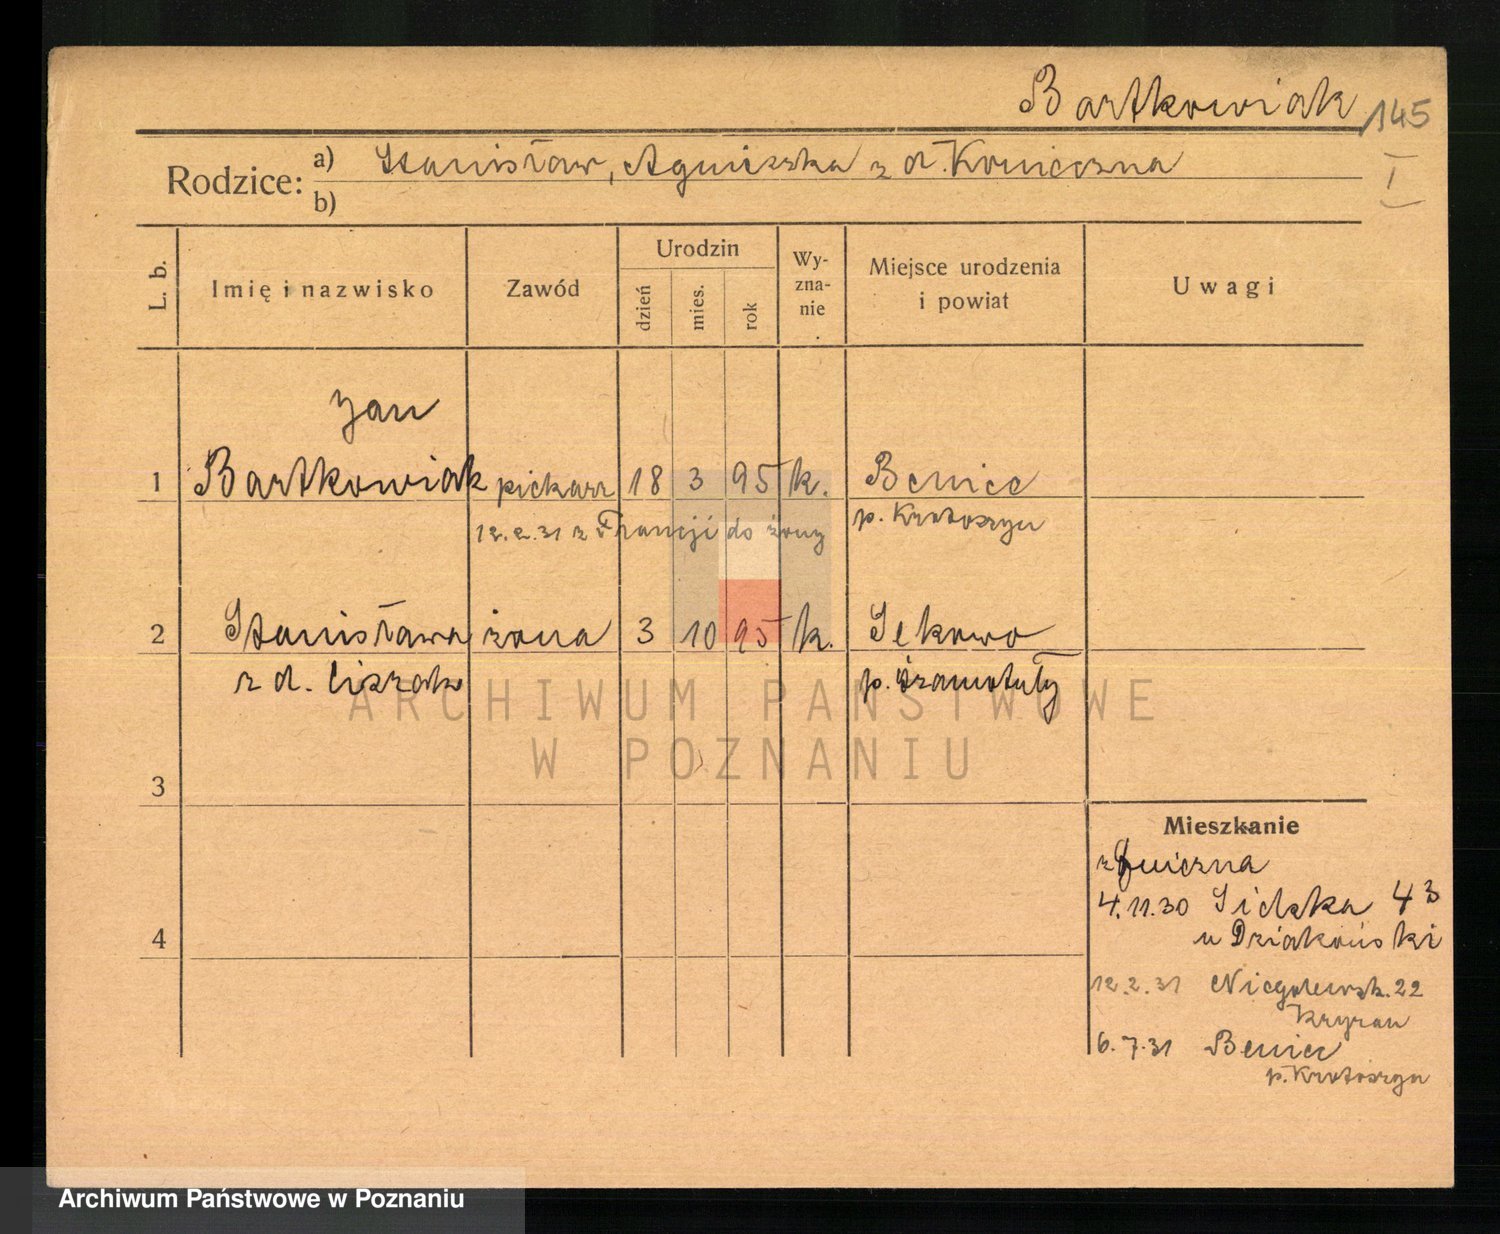 Bartkowiak 145
I
Rodzice: a) Stanisław, Agnieszka z d. Konieczna
b)
L. b.
Imię i nazwisko
Zawód
Urodzin
dzień
mies.
rok
Wy-
zna-
nie
Miejsce urodzenia
i powiat
Uwagi
Jan
1 Bartkowiak piekarz 18 3 95 k. Benice
12.2.31 z Francji do żony p. Krotoszyn
2 Stanisława żona 3 10 95 k. Sękowo
z d. p. Szamotuły
ARCHIWUM PAŃSTWOWE
W POZNANIU
3
4
Mieszkanie
z
4.11.30 43
u
12.2.31 Niegolewsk. 22
6.7.31 Benice
p. Krotoszyn
Archiwum Państwowe w Poznaniu